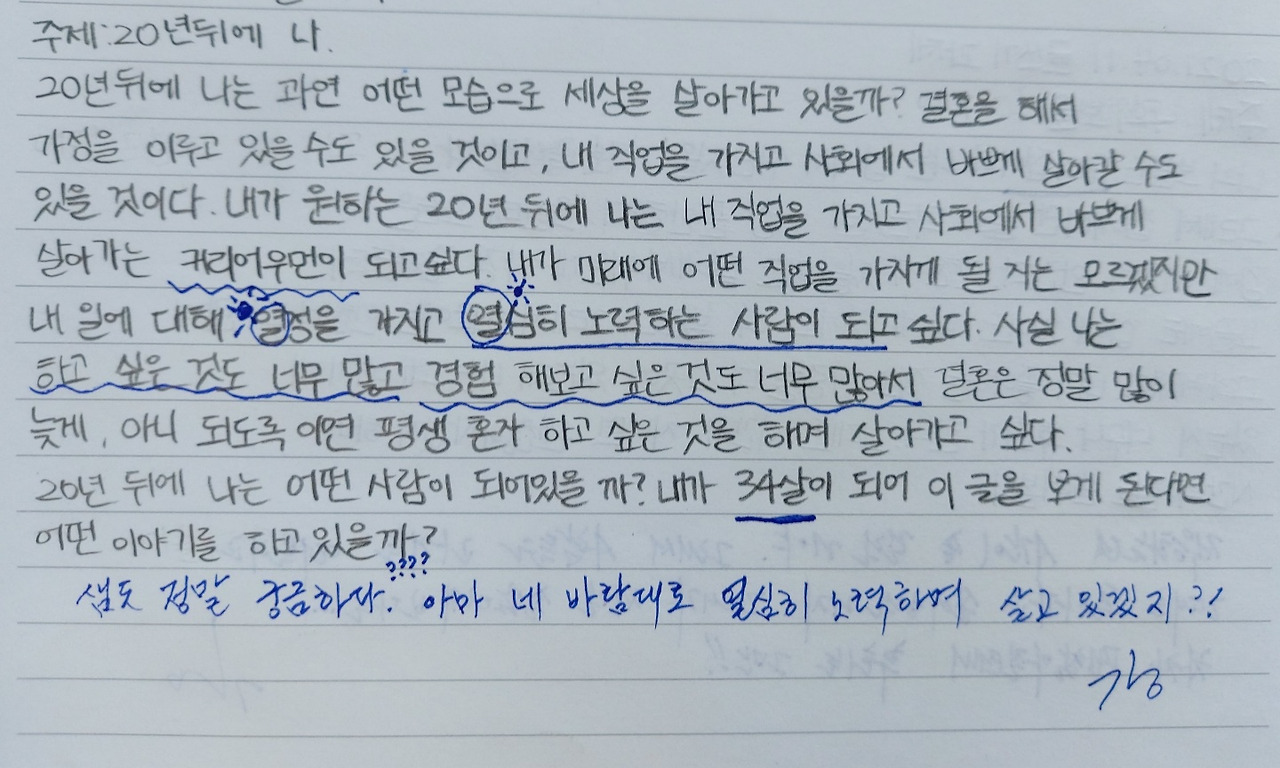 주제:20년뒤에 나.
20년뒤에 나는 과연 어떤 모습으로 세상을 살아가고 있을까? 결혼을 해서
가정을 이루고 있을 수도 있을 것이고, 내 직업을 가지고 사회에서 바쁘게 살아갈 수도
있을 것이다. 내가 원하는 20년 뒤에 나는 내 직업을 가지고 사회에서 바쁘게
살아가는 커리어우먼이 되고싶다. 내가 미래에 어떤 직업을 가지게 될 지는 모르겠지만
내 일에 대해 열정을 가지고 열심히 노력하는 사람이 되고 싶다. 사실 나는
하고 싶은 것도 너무 많고 경험 해보고 싶은 것도 너무 많아서 결혼은 정말 많이
늦게, 아니 되도록이면 평생 혼자 하고 싶은 것을 하며 살아가고 싶다.
20년 뒤에 나는 어떤 사람이 되어있을 까? 내가 34살이 되어 이 글을 보게 된다면
어떤 이야기를 하고있을까?
????
샘도 정말 궁금하다. 아마 네 바람대로 열심히 노력하며 살고 있겠지??